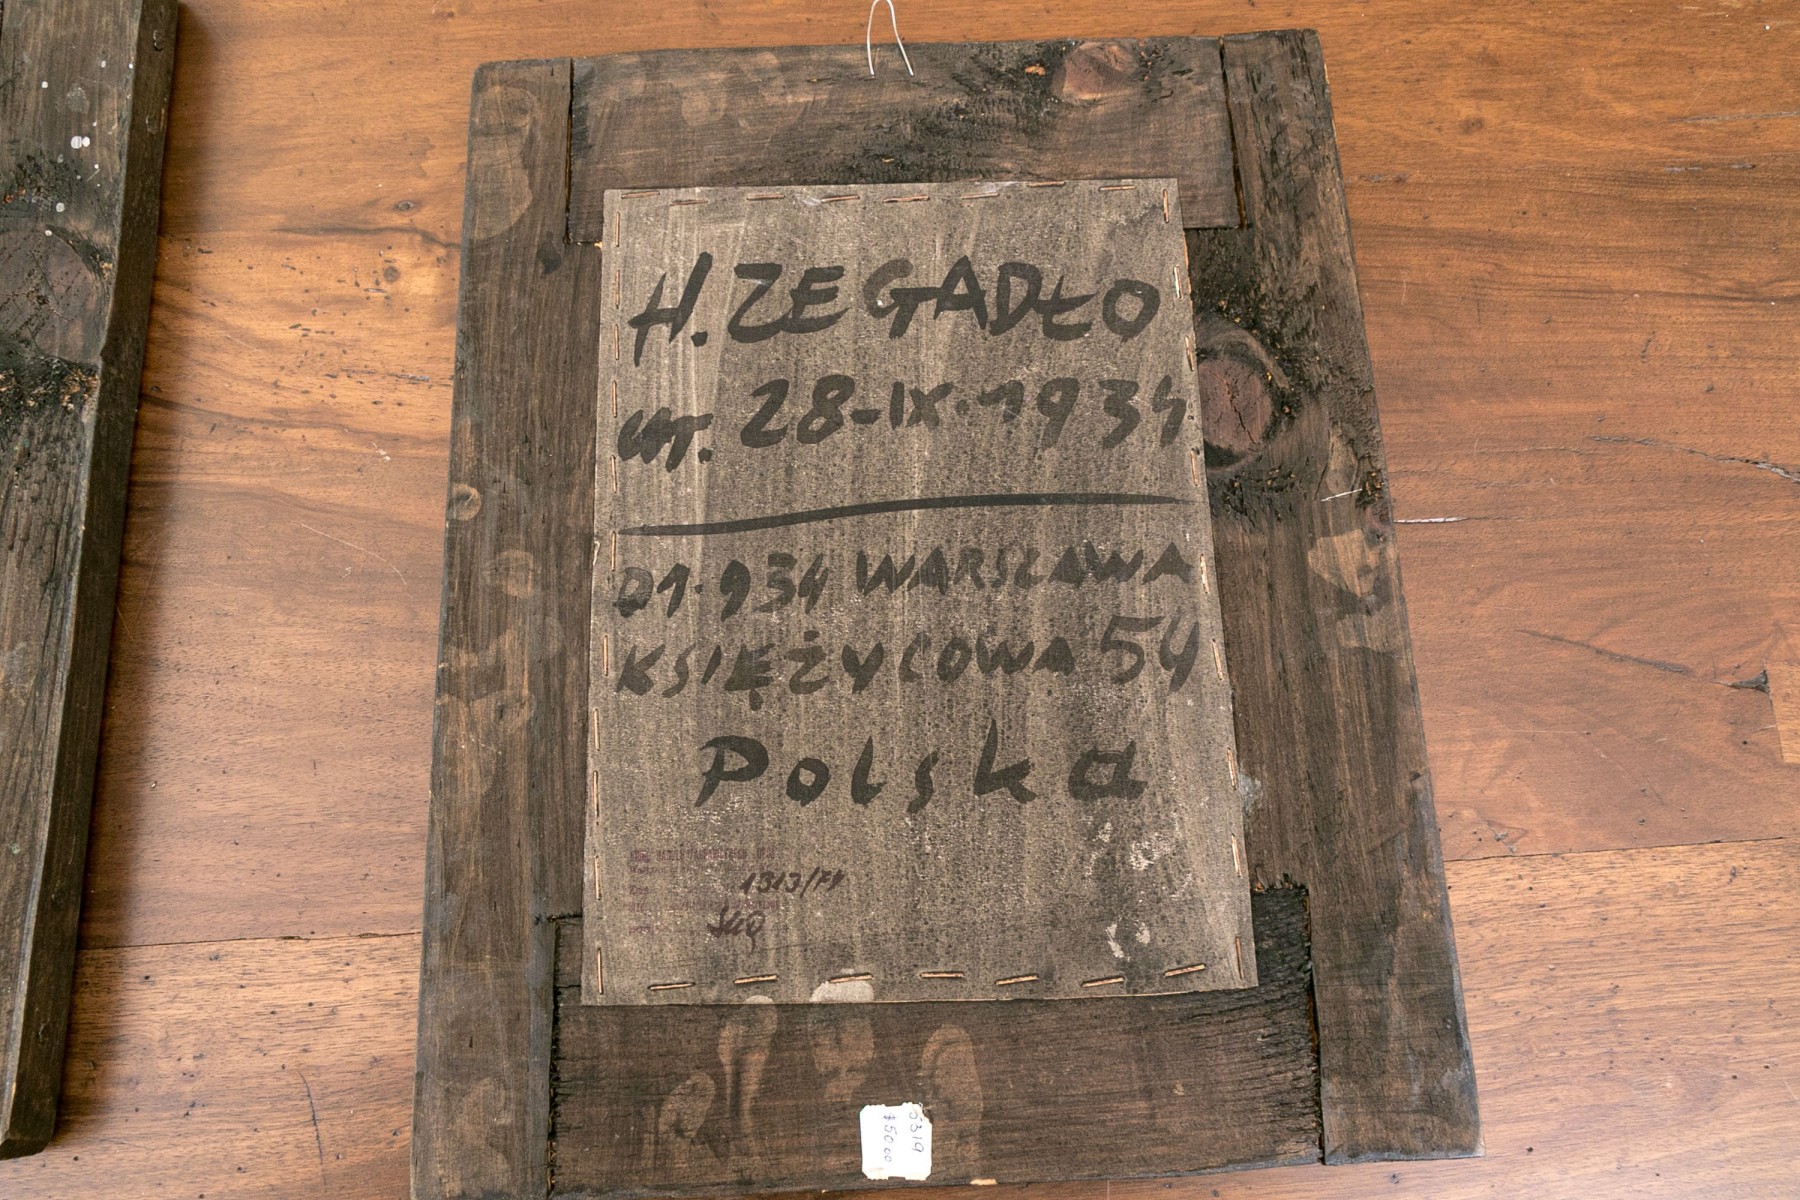 H. ZEGADŁO
ur. 28-IX-1934
01-934 WARSZAWA
KSIĘŻYCOWA 54
Polska
1313/74
5319
$50.00